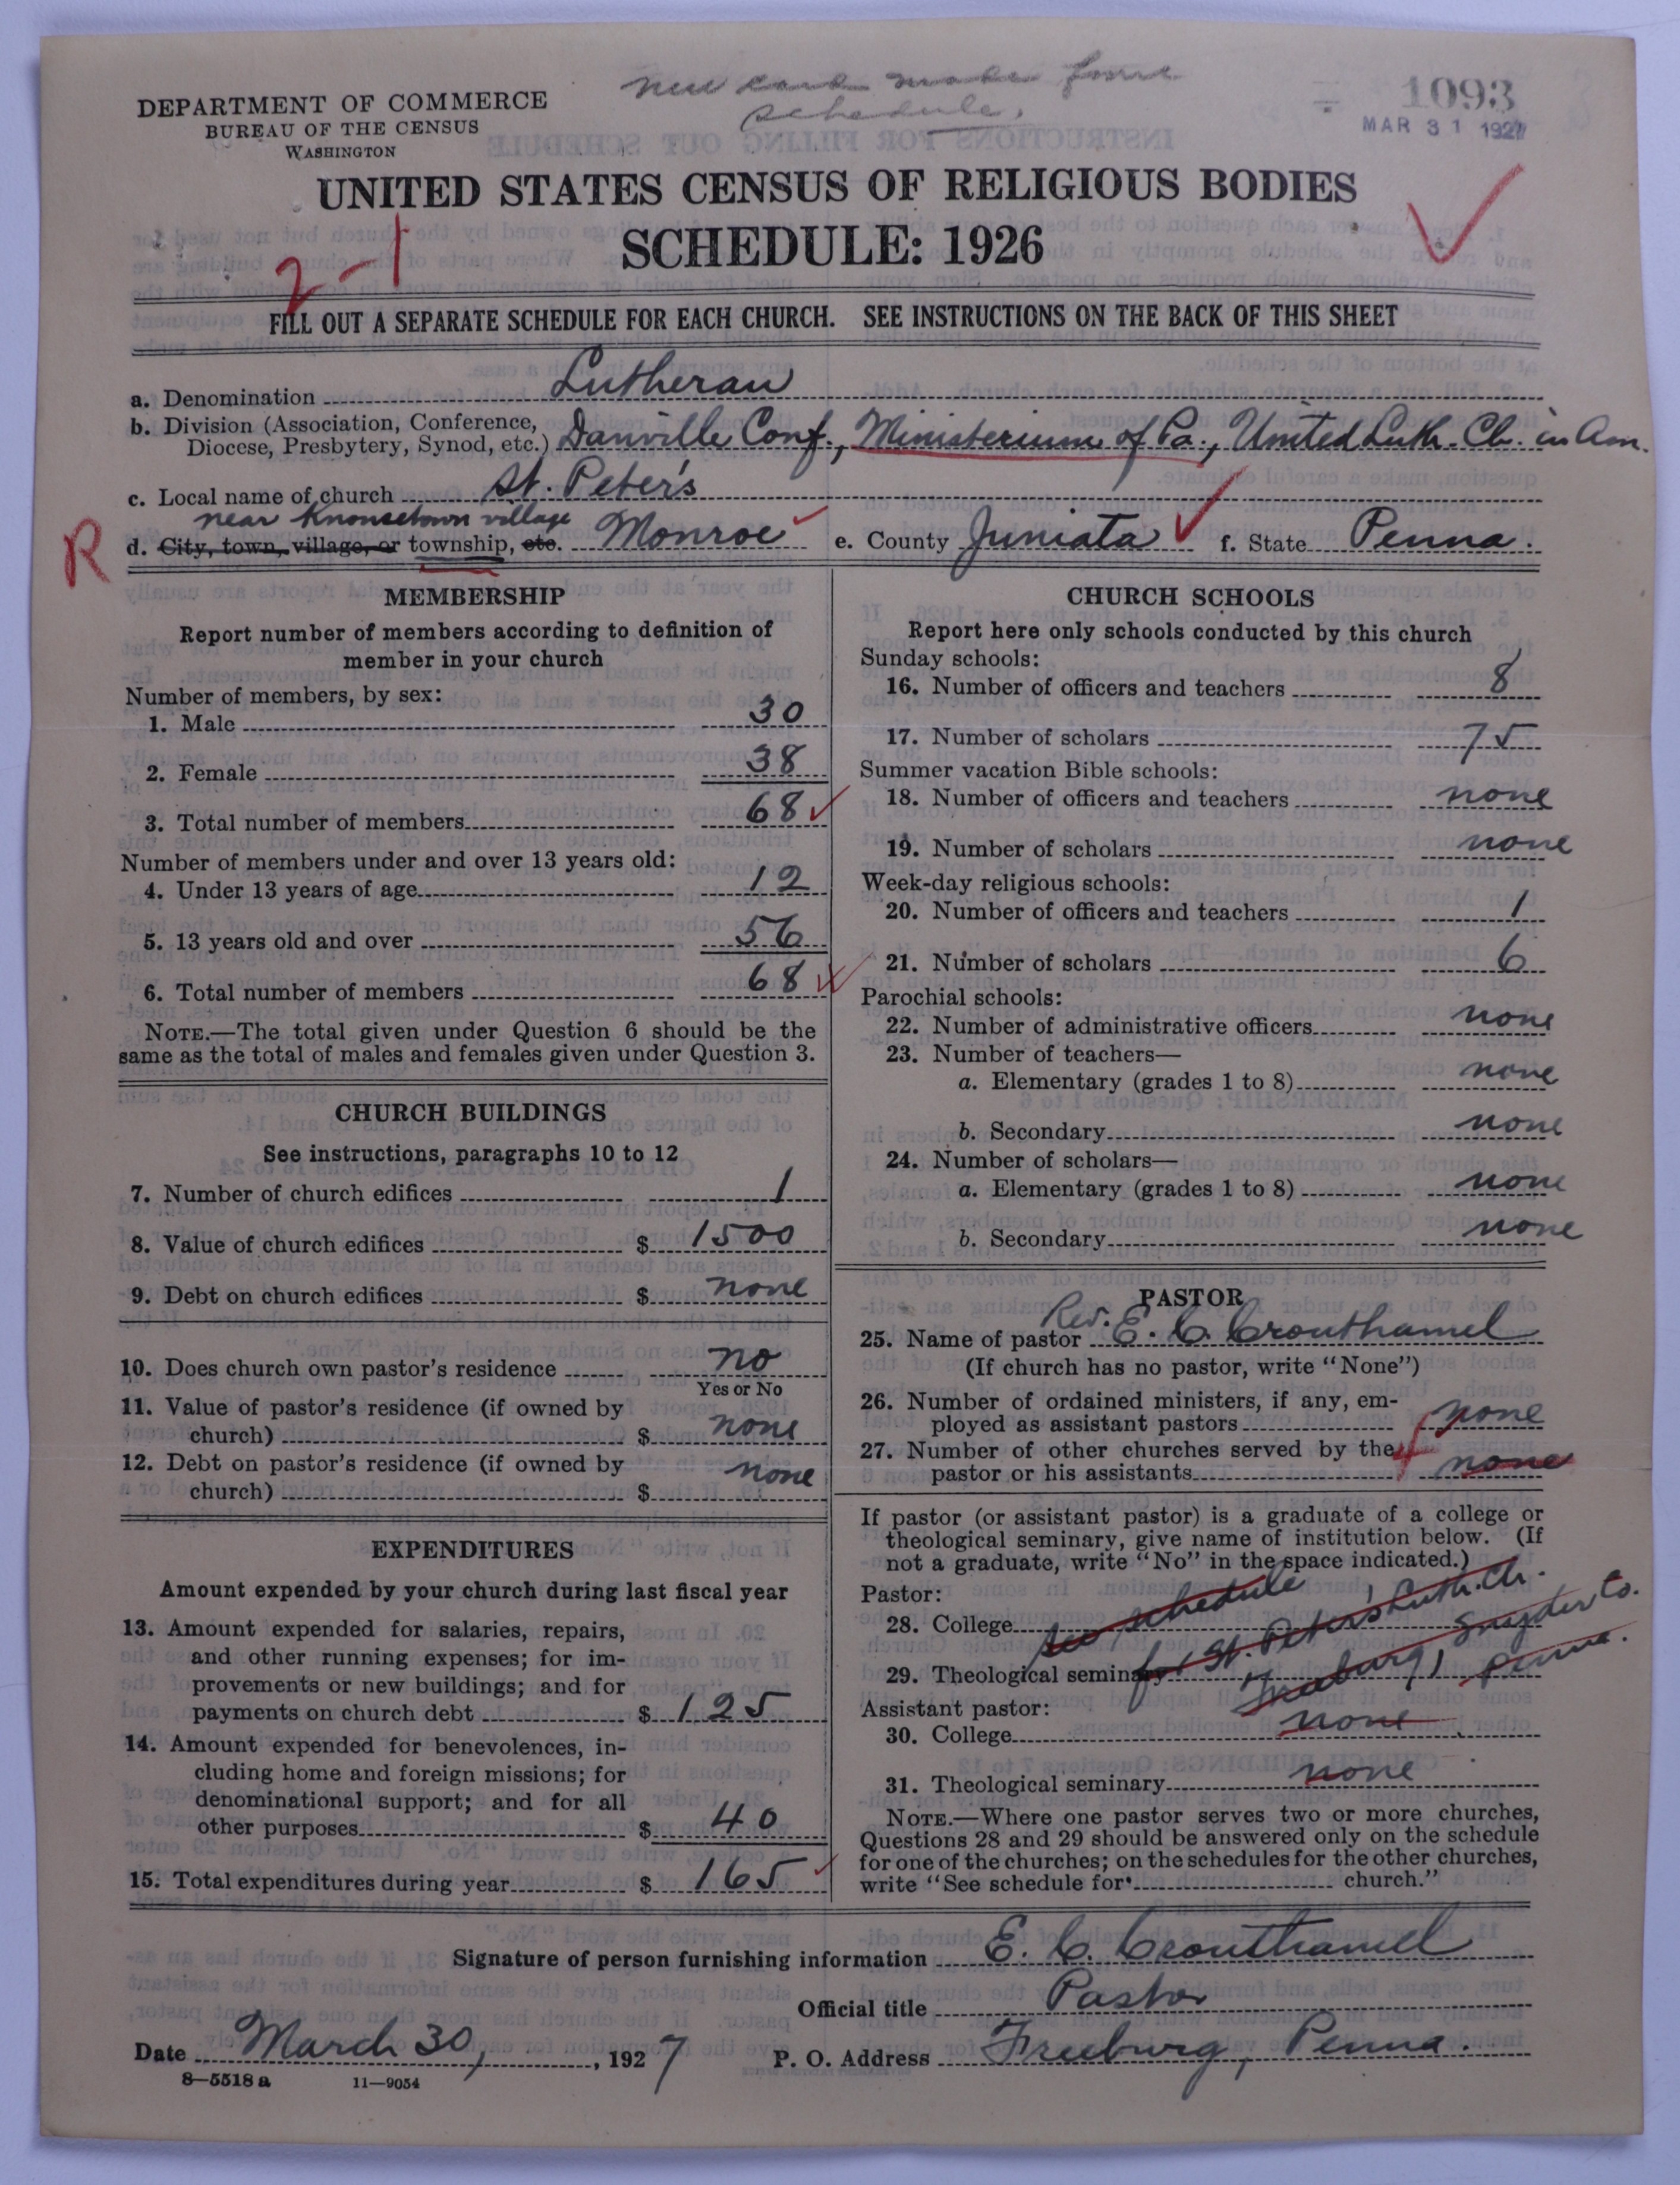 new card made from
schedule.
1093
MAR 31 1927
DEPARTMENT OF COMMERCE
BUREAU OF THE CENSUS
WASHINGTON
UNITED STATES CENSUS OF RELIGIOUS BODIES
SCHEDULE: 1926
2-1
FILL OUT A SEPARATE SCHEDULE FOR EACH CHURCH. SEE INSTRUCTIONS ON THE BACK OF THIS SHEET
a. Denomination Lutheran
b. Division (Association, Conference,
Diocese, Presbytery, Synod, etc.) Danville Conf., Ministerium of Pa., United Luth. Ch. in Am.
c. Local name of church St. Peter's
near Knousetown village
R d. City, town, village, or township, etc. Monroe e. County Juniata f. State Penna.
MEMBERSHIP
Report number of members according to definition of
member in your church
Number of members, by sex:
1. Male 30
2. Female 38
3. Total number of members 68
Number of members under and over 13 years old:
4. Under 13 years of age 12
5. 13 years old and over 56
6. Total number of members 68
NOTE.—The total given under Question 6 should be the
same as the total of males and females given under Question 3.
CHURCH BUILDINGS
See instructions, paragraphs 10 to 12
7. Number of church edifices 1
8. Value of church edifices $ 1500
9. Debt on church edifices $ none
10. Does church own pastor's residence no
Yes or No
11. Value of pastor's residence (if owned by
church) $ none
12. Debt on pastor's residence (if owned by
church) $ none
EXPENDITURES
Amount expended by your church during last fiscal year
13. Amount expended for salaries, repairs,
and other running expenses; for im-
provements or new buildings; and for
payments on church debt $ 125
14. Amount expended for benevolences, in-
cluding home and foreign missions; for
denominational support; and for all
other purposes $ 40
15. Total expenditures during year $ 165
CHURCH SCHOOLS
Report here only schools conducted by this church
Sunday schools:
16. Number of officers and teachers 8
17. Number of scholars 75
Summer vacation Bible schools:
18. Number of officers and teachers none
19. Number of scholars none
Week-day religious schools:
20. Number of officers and teachers 1
21. Number of scholars 6
Parochial schools:
22. Number of administrative officers none
23. Number of teachers—
a. Elementary (grades 1 to 8) none
b. Secondary none
24. Number of scholars—
a. Elementary (grades 1 to 8) none
b. Secondary none
PASTOR
25. Name of pastor Rev. E. C. Crouthamel
(If church has no pastor, write "None")
26. Number of ordained ministers, if any, em-
ployed as assistant pastors none
27. Number of other churches served by the
pastor or his assistants 4 none
If pastor (or assistant pastor) is a graduate of a college or
theological seminary, give name of institution below. (If
not a graduate, write "No" in the space indicated.)
Pastor:
28. College see schedule
29. Theological seminary for St. Peter's Luth. Ch.
Freeburg, Snyder Co.
Penna.
Assistant pastor:
30. College none
31. Theological seminary none
NOTE.—Where one pastor serves two or more churches,
Questions 28 and 29 should be answered only on the schedule
for one of the churches; on the schedules for the other churches,
write "See schedule for church."
Signature of person furnishing information E. C. Crouthamel
Official title Pastor
Date March 30, 1927 P. O. Address Freeburg, Penna.
8—5518 a 11—9054